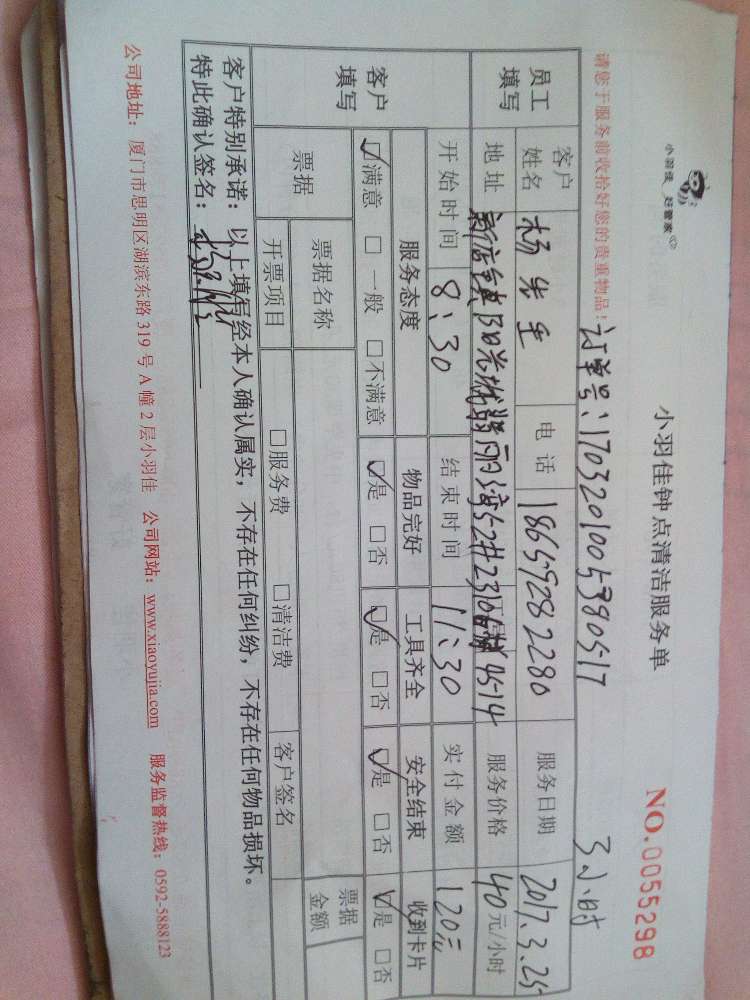 小羽佳 好管家
小羽佳钟点清洁服务单
NO.0055298
请您于服务前收拾好您的贵重物品!
订单号:1703201005390517
3小时
员工填写
客户姓名 杨先生 电话 18659282280 服务日期 2017.3.25
地址 新店 阳光城翡丽湾52# 2310 4514 服务价格 40元/小时
开始时间 8:30 结束时间 11:30 实付金额 120元
客户填写
服务态度 物品完好 工具齐全 安全结束 收到卡片
☑满意 □一般 □不满意 ☑是 □否 ☑是 □否 ☑是 □否 ☑是 □否
票据 票据名称 票据金额
开票项目 □服务费 □清洁费 客户签名
客户特别承诺:以上填写经本人确认属实,不存在任何纠纷,不存在任何物品损坏。
特此确认签名:
公司地址:厦门市思明区湖滨东路319号A幢2层小羽佳 公司网站:www.xiaoyujia.com 服务监督热线:0592-5888123